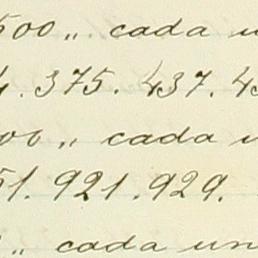 500 „ cada u
4. 375. 437. 43
00 „ cada u
51. 921. 929.
„ cada un